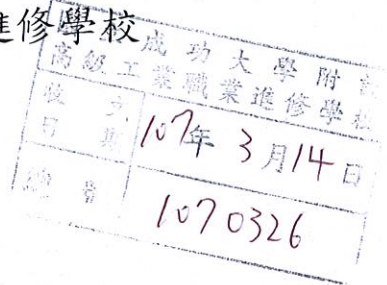 進修學校
成功大學附設
高級工業職業進修學校
收文
日期 107年3月14日
總號 1070326